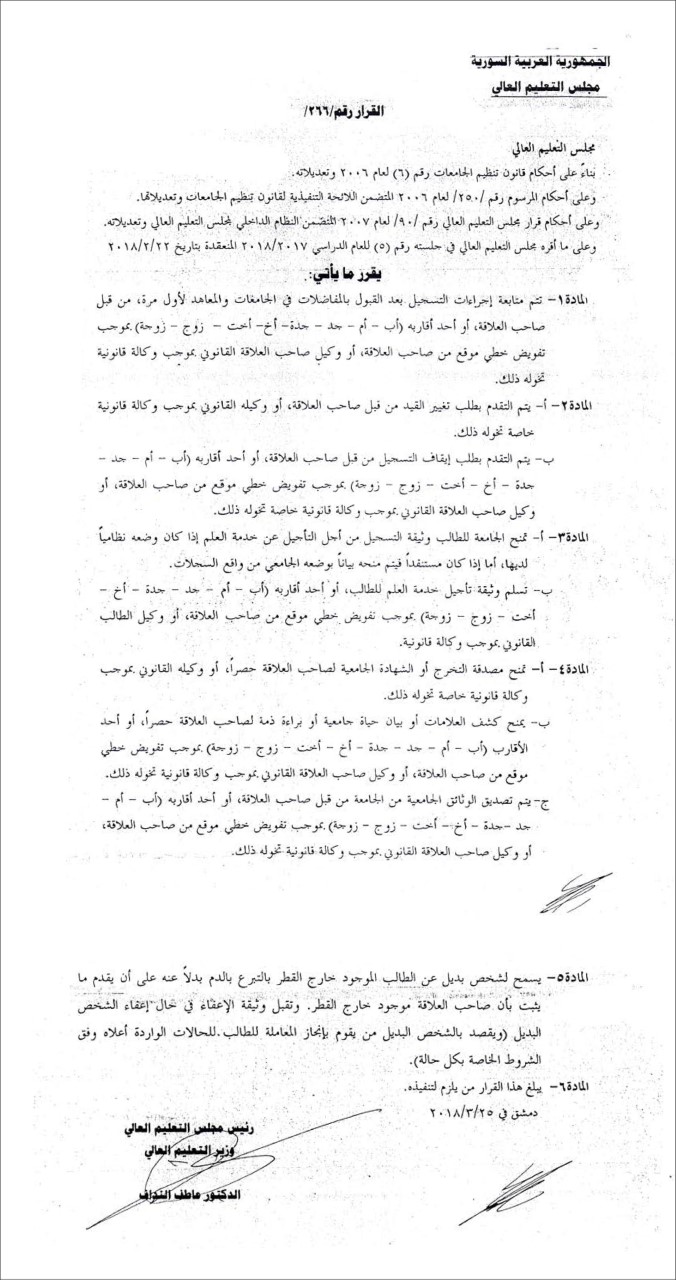 الجمهورية العربية السورية
مجلس التعليم العالي
القرار رقم/٢٦٦/
مجلس التعليم العالي
بناءً على أحكام قانون تنظيم الجامعات رقم (٦) لعام ٢٠٠٦ وتعديلاته.
وعلى أحكام المرسوم رقم /٢٥٠/ لعام ٢٠٠٦ المتضمن اللائحة التنفيذية لقانون تنظيم الجامعات وتعديلاتها.
وعلى أحكام قرار مجلس التعليم العالي رقم /٩٠/ لعام ٢٠٠٧ المتضمن النظام الداخلي لمجلس التعليم العالي وتعديلاته.
وعلى ما أقره مجلس التعليم العالي في جلسته رقم (٥) للعام الدراسي ٢٠١٨/٢٠١٧ المنعقدة بتاريخ ٢٠١٨/٢/٢٢
يقرر ما يأتي:
المادة١- تتم متابعة إجراءات التسجيل بعد القبول بالمفاضلات في الجامعات والمعاهد لأول مرة، من قبل
صاحب العلاقة، أو أحد أقاربه (أب – أم – جد – جدة– أخ– أخت – زوج – زوجة) بموجب
تفويض خطي موقع من صاحب العلاقة، أو وكيل صاحب العلاقة القانوني بموجب وكالة قانونية
تخوله ذلك.
المادة٢- أ- يتم التقدم بطلب تغيير القيد من قبل صاحب العلاقة، أو وكيله القانوني بموجب وكالة قانونية
خاصة تخوله ذلك.
ب- يتم التقدم بطلب إيقاف التسجيل من قبل صاحب العلاقة، أو أحد أقاربه (أب – أم – جد –
جدة – أخ – أخت – زوج – زوجة) بموجب تفويض خطي موقع من صاحب العلاقة، أو
وكيل صاحب العلاقة القانوني بموجب وكالة قانونية خاصة تخوله ذلك.
المادة٣- أ- تمنح الجامعة للطالب وثيقة التسجيل من أجل التأجيل عن خدمة العلم إذا كان وضعه نظامياً
لديها، أما إذا كان مستنفداً فيتم منحه بياناً بوضعه الجامعي من واقع السجلات.
ب- تسلم وثيقة تأجيل خدمة العلم للطالب، أو أحد أقاربه (أب – أم – جد – جدة – أخ –
أخت – زوج – زوجة) بموجب تفويض خطي موقع من صاحب العلاقة، أو وكيل الطالب
القانوني بموجب وكالة قانونية.
المادة٤- أ- تمنح مصدقة التخرج أو الشهادة الجامعية لصاحب العلاقة حصراً، أو وكيله القانوني بموجب
وكالة قانونية خاصة تخوله ذلك.
ب- يمنح كشف العلامات أو بيان حياة جامعية أو براءة ذمة لصاحب العلاقة حصراً، أو أحد
الأقارب (أب – أم – جد – جدة – أخ – أخت – زوج – زوجة) بموجب تفويض خطي
موقع من صاحب العلاقة، أو وكيل صاحب العلاقة القانوني بموجب وكالة قانونية تخوله ذلك.
ج- يتم تصديق الوثائق الجامعية من الجامعة من قبل صاحب العلاقة، أو أحد أقاربه (أب – أم –
جد –جدة – أخ – أخت – زوج – زوجة) بموجب تفويض خطي موقع من صاحب العلاقة،
أو وكيل صاحب العلاقة القانوني بموجب وكالة قانونية تخوله ذلك.
المادة٥- يسمح لشخص بديل عن الطالب الموجود خارج القطر بالتبرع بالدم بدلاً عنه على أن يقدم ما
يثبت بأن صاحب العلاقة موجود خارج القطر. وتقبل وثيقة الإعفاء في حال إعفاء الشخص
البديل (ويقصد بالشخص البديل من يقوم بإنجاز المعاملة للطالب للحالات الواردة أعلاه وفق
الشروط الخاصة بكل حالة).
المادة٦- يبلغ هذا القرار من يلزم لتنفيذه.
دمشق في ٢٠١٨/٣/٢٥
رئيس مجلس التعليم العالي
وزير التعليم العالي
الدكتور عاطف النداف